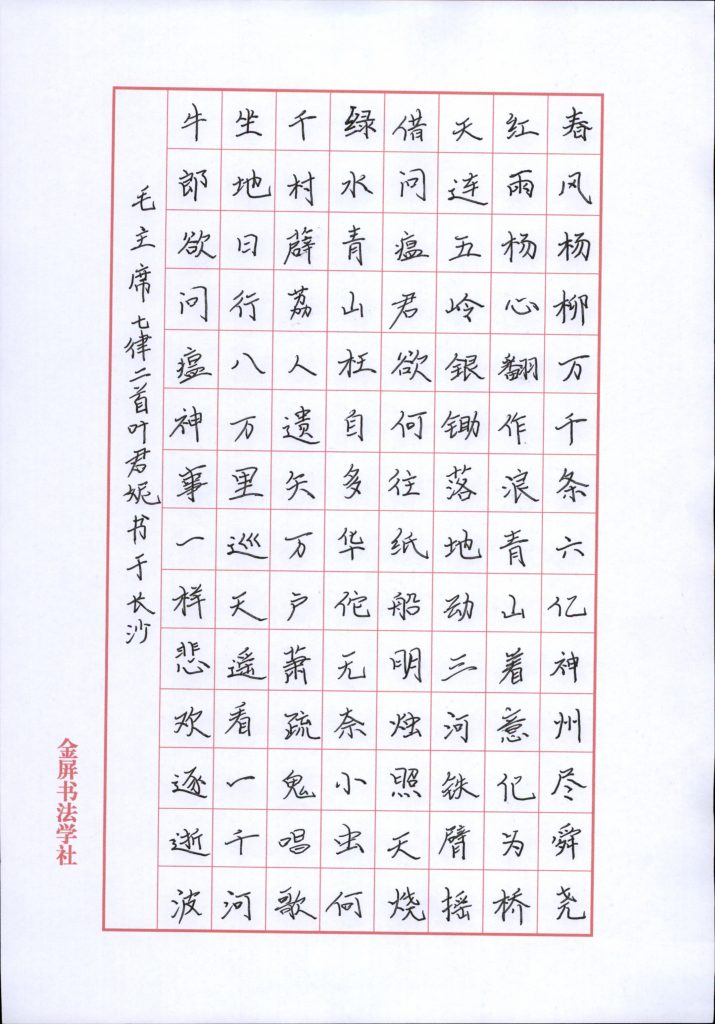 春风杨柳万千条六亿神州尽舜尧
红雨杨心翻作浪青山着意化为桥
天连五岭银锄落地动三河铁臂摇
借问瘟君欲何往纸船明烛照天烧
绿水青山枉自多华佗无奈小虫何
千村薜荔人遗矢万户萧疏鬼唱歌
坐地日行八万里巡天遥看一千河
牛郎欲问瘟神事一样悲欢逐逝波
毛主席七律二首叶君妮书于长沙
金屏书法学社